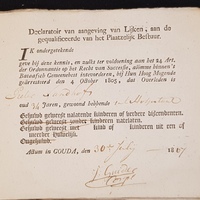 Declaratoir van aangeving van Lijken, aan de
gequalificeerde van het Plaatzelijk Bestuur.
IK ondergeteekende
geve bij deze kennis, en zulks ter voldoening aan het 24 Art.
der Ordonnantie op het Recht van Successie, alömme binnen 's
Bataafsch Gemeenebest intevoerderen, bij Hun Hoog Mogende
gearresteerd den 4 October 1805, dat Overleden is
oud 74 Jaren, gewoond hebbende
Gehuwd geweest nalatende kinderen of verdere bijzonderheden.
Gehuwd geweest zonder kinderen natelaten.
Gehuwd geweest met kind of kinderen uit een of
meerder Huwelijk.
Ongehuwd.
Actum in GOUDA, den 30 July 1807